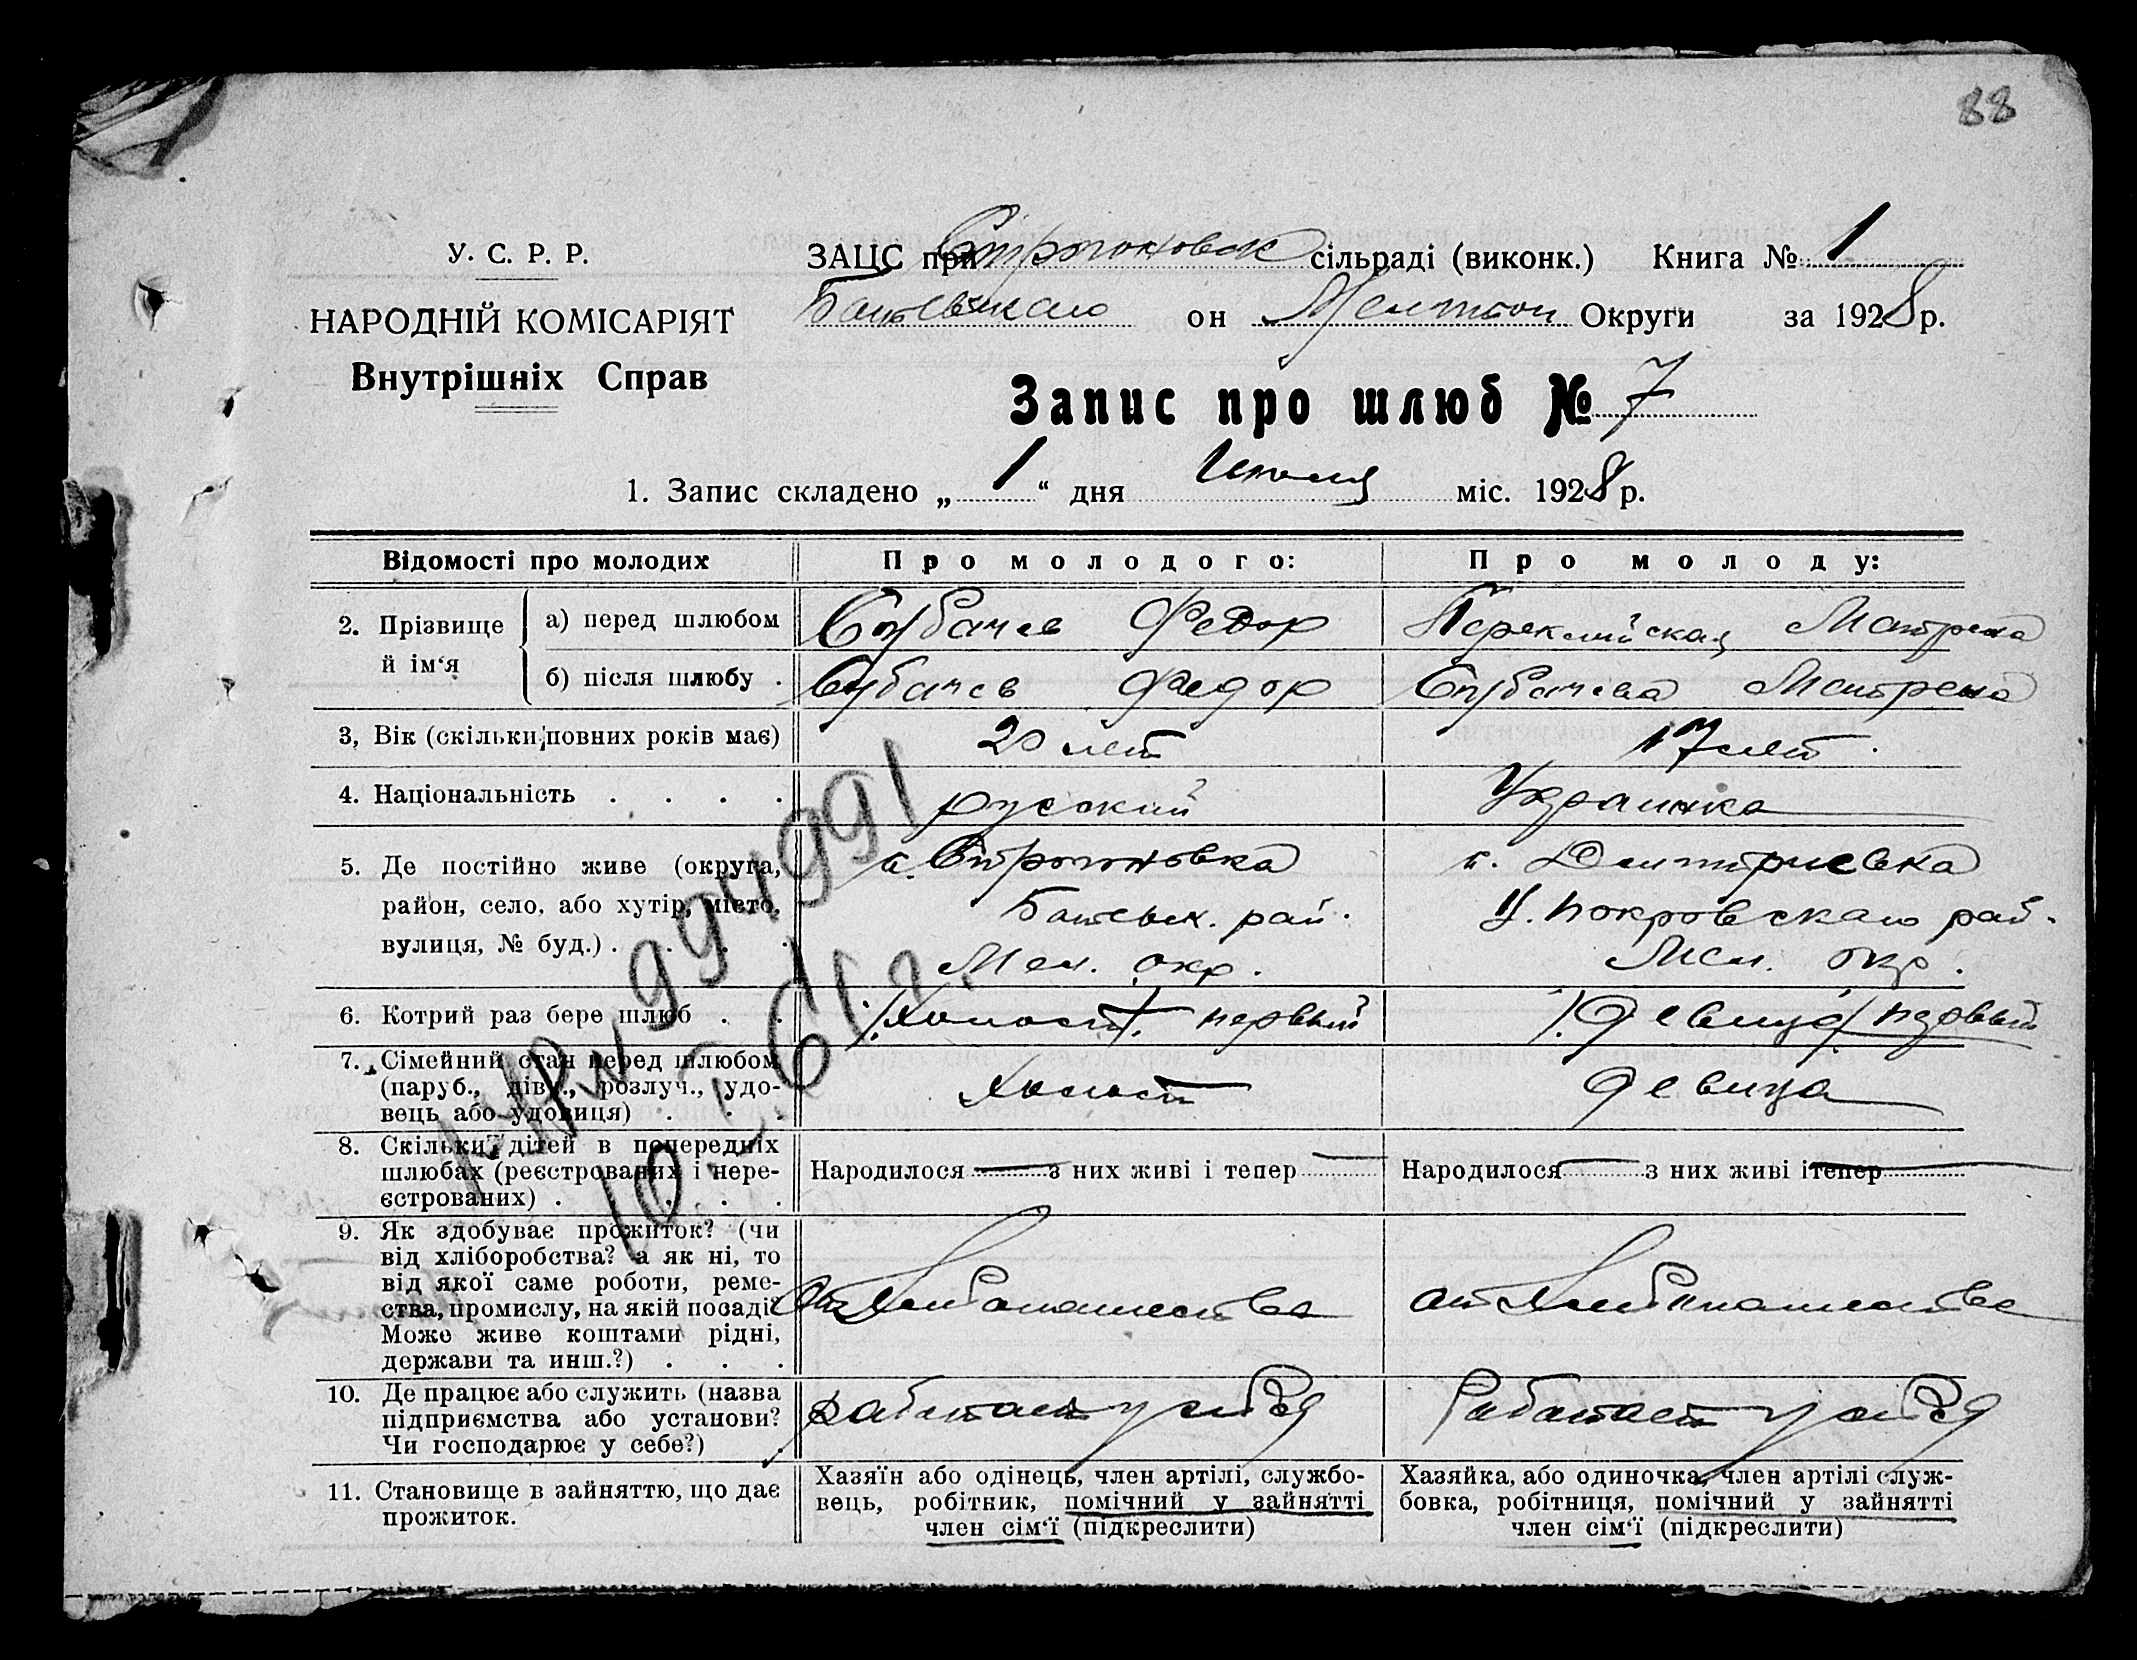 88
У. С. Р. Р.
НАРОДНІЙ КОМІСАРІЯТ
Внутрішніх Справ
ЗАЦС при Строгоновск сільраді (виконк.) Книга № 1
он Округи за 1928 р.
Запис про шлюб № 7
1. Запис складено „ 1 “ дня Июля міс. 1928 р.
Відомості про молодих
Про молодого:
Про молоду:
2. Прізвище й ім‘я
а) перед шлюбом
Федор
Матрена
б) після шлюбу .
Федор
Матрена
3, Вік (скільки повних років має)
20 лет
17 лет.
4. Національність . . . .
русский
Украинка
5. Де постійно живе (округа,
район, село, або хутір, місто,
вулиця, № буд.) . . . .
с. Строгоновка
рай.
Мел. окр.
с. Дмитриевка
Ц. Покровскаго рай.
Мел. окр.
6. Котрий раз бере шлюб . .
/Холост/. первый
/Девица/ первый
7. Сімейний стан перед шлюбом
(паруб., дівч., розлуч., удо-
вець або удовиця) . . .
Холост
девица
8. Скільки дітей в попередніх
шлюбах (реєстрованих і нере-
єстрованих) . . . . .
Народилося — з них живі і тепер —
Народилося — з них живі і тепер —
9. Як здобуває прожиток? (чи
від хліборобства? а як ні, то
від якої саме роботи, реме-
ства, промислу, на якій посаді?
Може живе коштами рідні,
держави та инш.?) . . .
от хлебопашества
от хлебопашества
10. Де працює або служить (назва
підприємства або установи?
Чи господарює у себе?) .
работает у себя
Работает у себя
11. Становище в зайняттю, що дає
прожиток.
Хазяїн або одінець, член артілі, службо-
вець, робітник, помічний у зайнятті
член сім‘ї (підкреслити)
Хазяйка, або одиночка, член артілі служ-
бовка, робітниця, помічний у зайнятті
член сім‘ї (підкреслити)